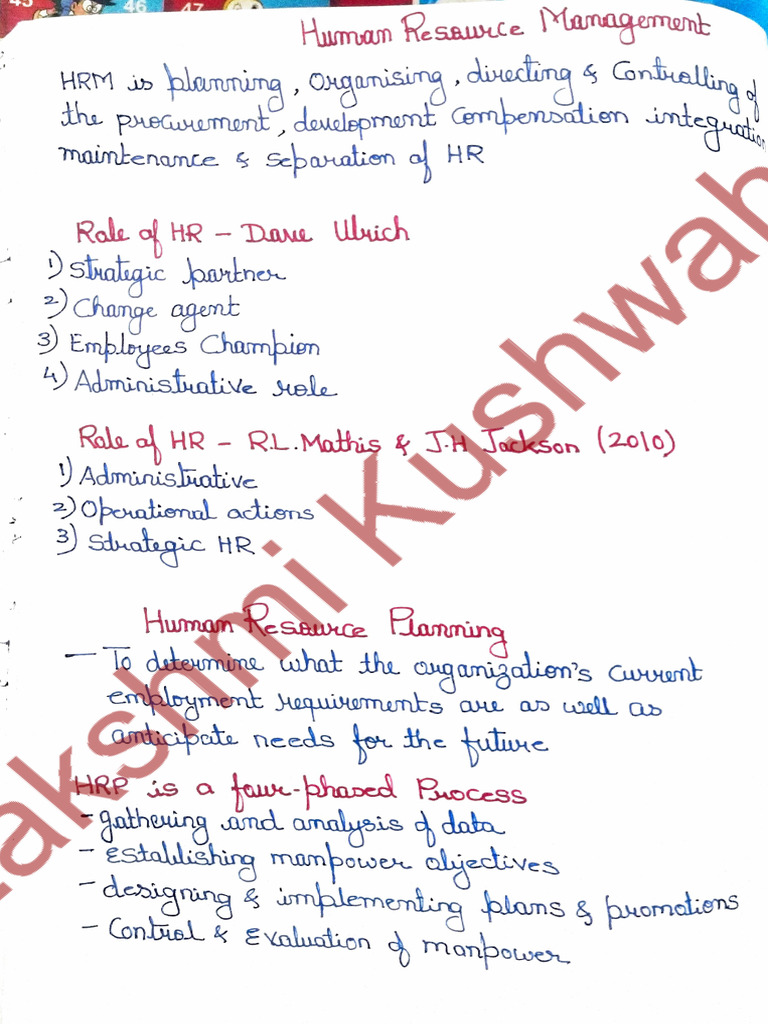 45 46 47
Human Resource Management
HRM is planning, Organising, directing & Controlling of
the procurement, development compensation integration
maintenance & separation of HR
Role of HR – Dave Ulrich
1) Strategic partner
2) Change agent
3) Employees Champion
4) Administrative role
Role of HR – R.L. Mathis & J.H Jackson (2010)
1) Administrative
2) Operational actions
3) Strategic HR
Human Resource Planning
— To determine what the organization's current
employment requirements are as well as
anticipate needs for the future
HRP is a four-phased Process
- gathering and analysis of data
- Establishing manpower objectives
- designing & implementing plans & promotions
- Control & Evaluation of manpower
akshmi Kushwah